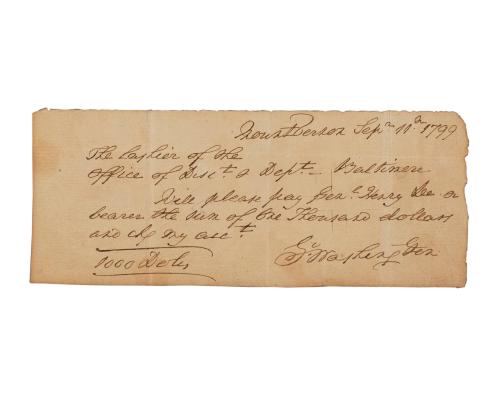 Mount Vernon Sepr 11th 1799
The Cashier of the
Office of Disct & Dept - Baltimore
Will please pay Genl Henry Lee or
bearer the sum of One Thousand dollars
and chg my acct.
1000 Dols
Go Washington